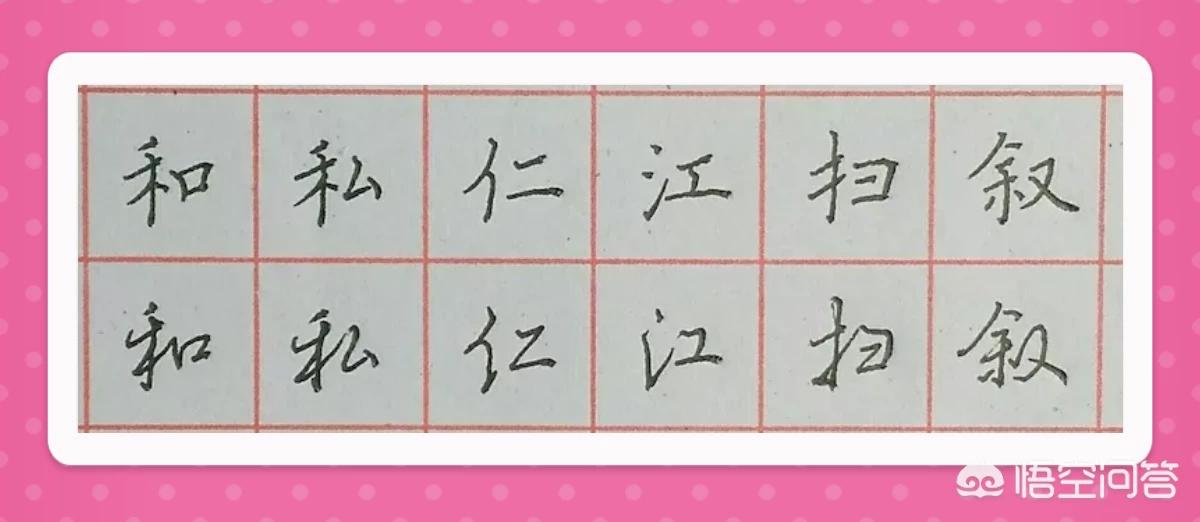 和私仁江扫叙
和私仁江扫叙
悟空问答